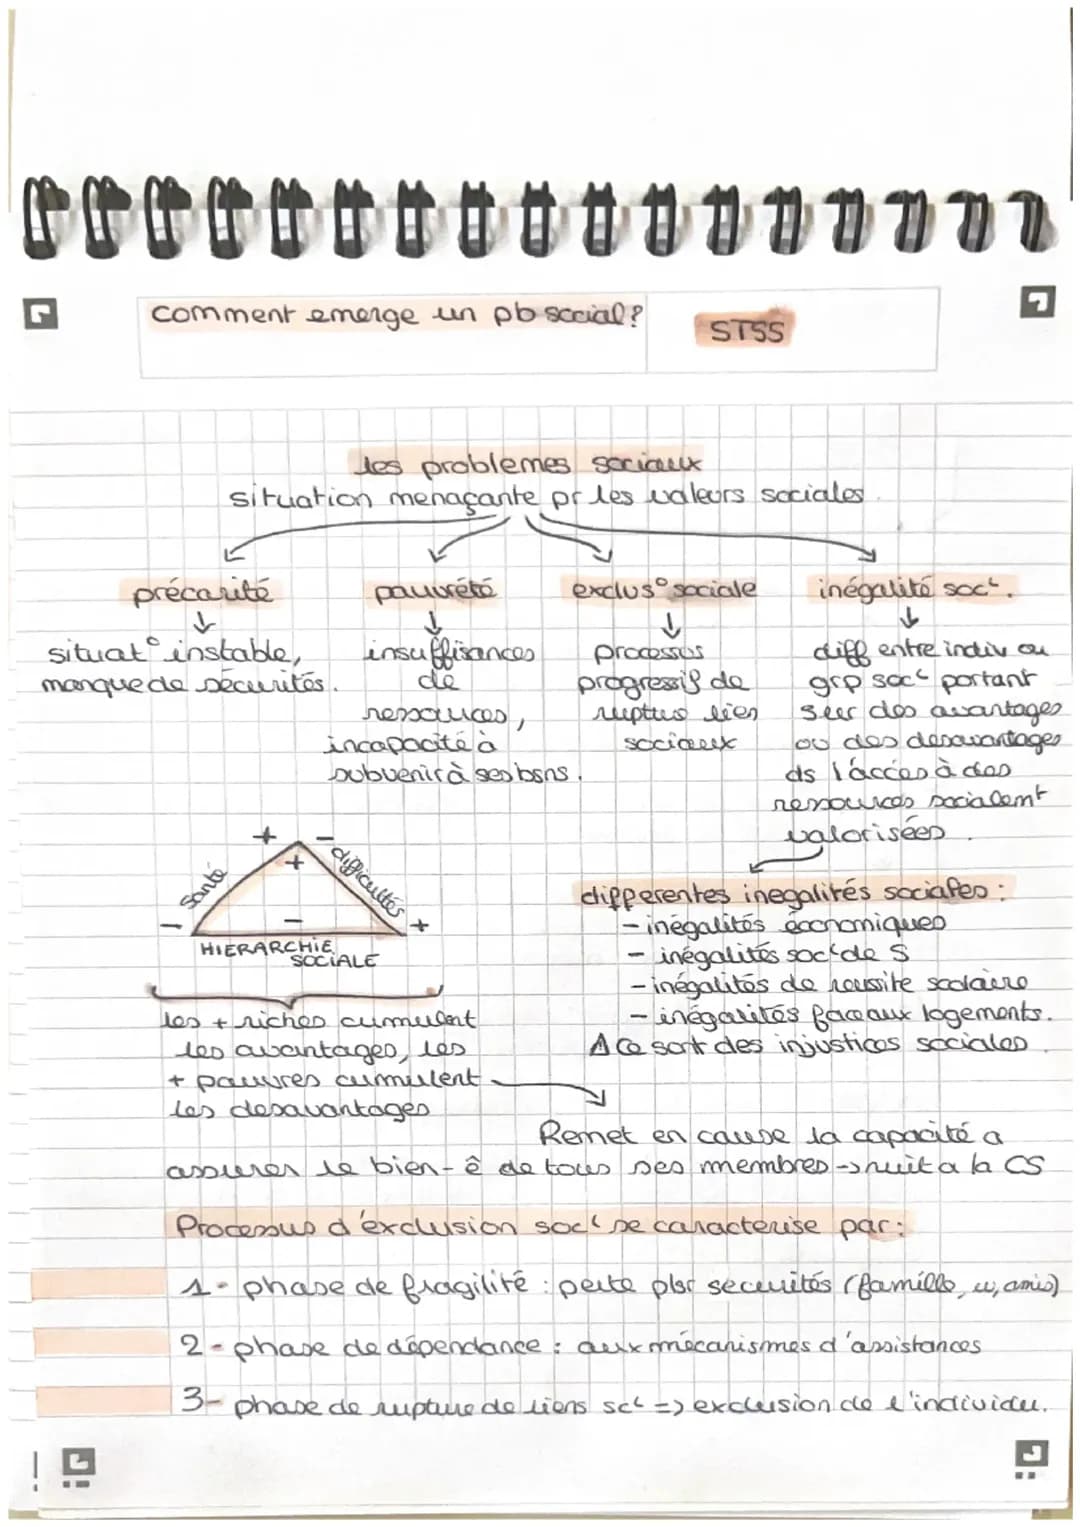 comment emerge un pb social?
STSS
les problemes sociaux
situation menaçante pr les valeurs sociales.
précarité
situat° instable,
manque de sécurités.
pauvrété
insuffisances
de
ressources,
incapacité à
subvenir à ses bsns.
exclus° sociale
processus
progressif de
ruptus lien
sociaux
inégalité socᵗ.
diff entre indiv ou
grp socᵗ portant
sur des avantages
ou des desavantages
ds l'accès à des
ressources socialemt
valorisées.
+ -
santé + difficultés
- - +
HIERARCHIE
SOCIALE
les + riches cumulent
les avantages, les
+ pauvres cumulent
les desavantages
differentes inegalités sociales :
- inégalités économiques
- inégalités socᵗ de S
- inégalités de reussite scolaire
- inégalités face aux logements.
Δ ce sont des injustices sociales.
Remet en cause la capacité a
assurer le bien-ê de tous ses membres -> nuit a la CS
Processus d'exclusion socˡ se caracterise par:
1- phase de fragilité : perte plsr securités (famille, w, amis)
2- phase de dépendance : aux mécanismes d'assistances
3- phase de rupture de liens scᵗ => exclusion de l'individu.